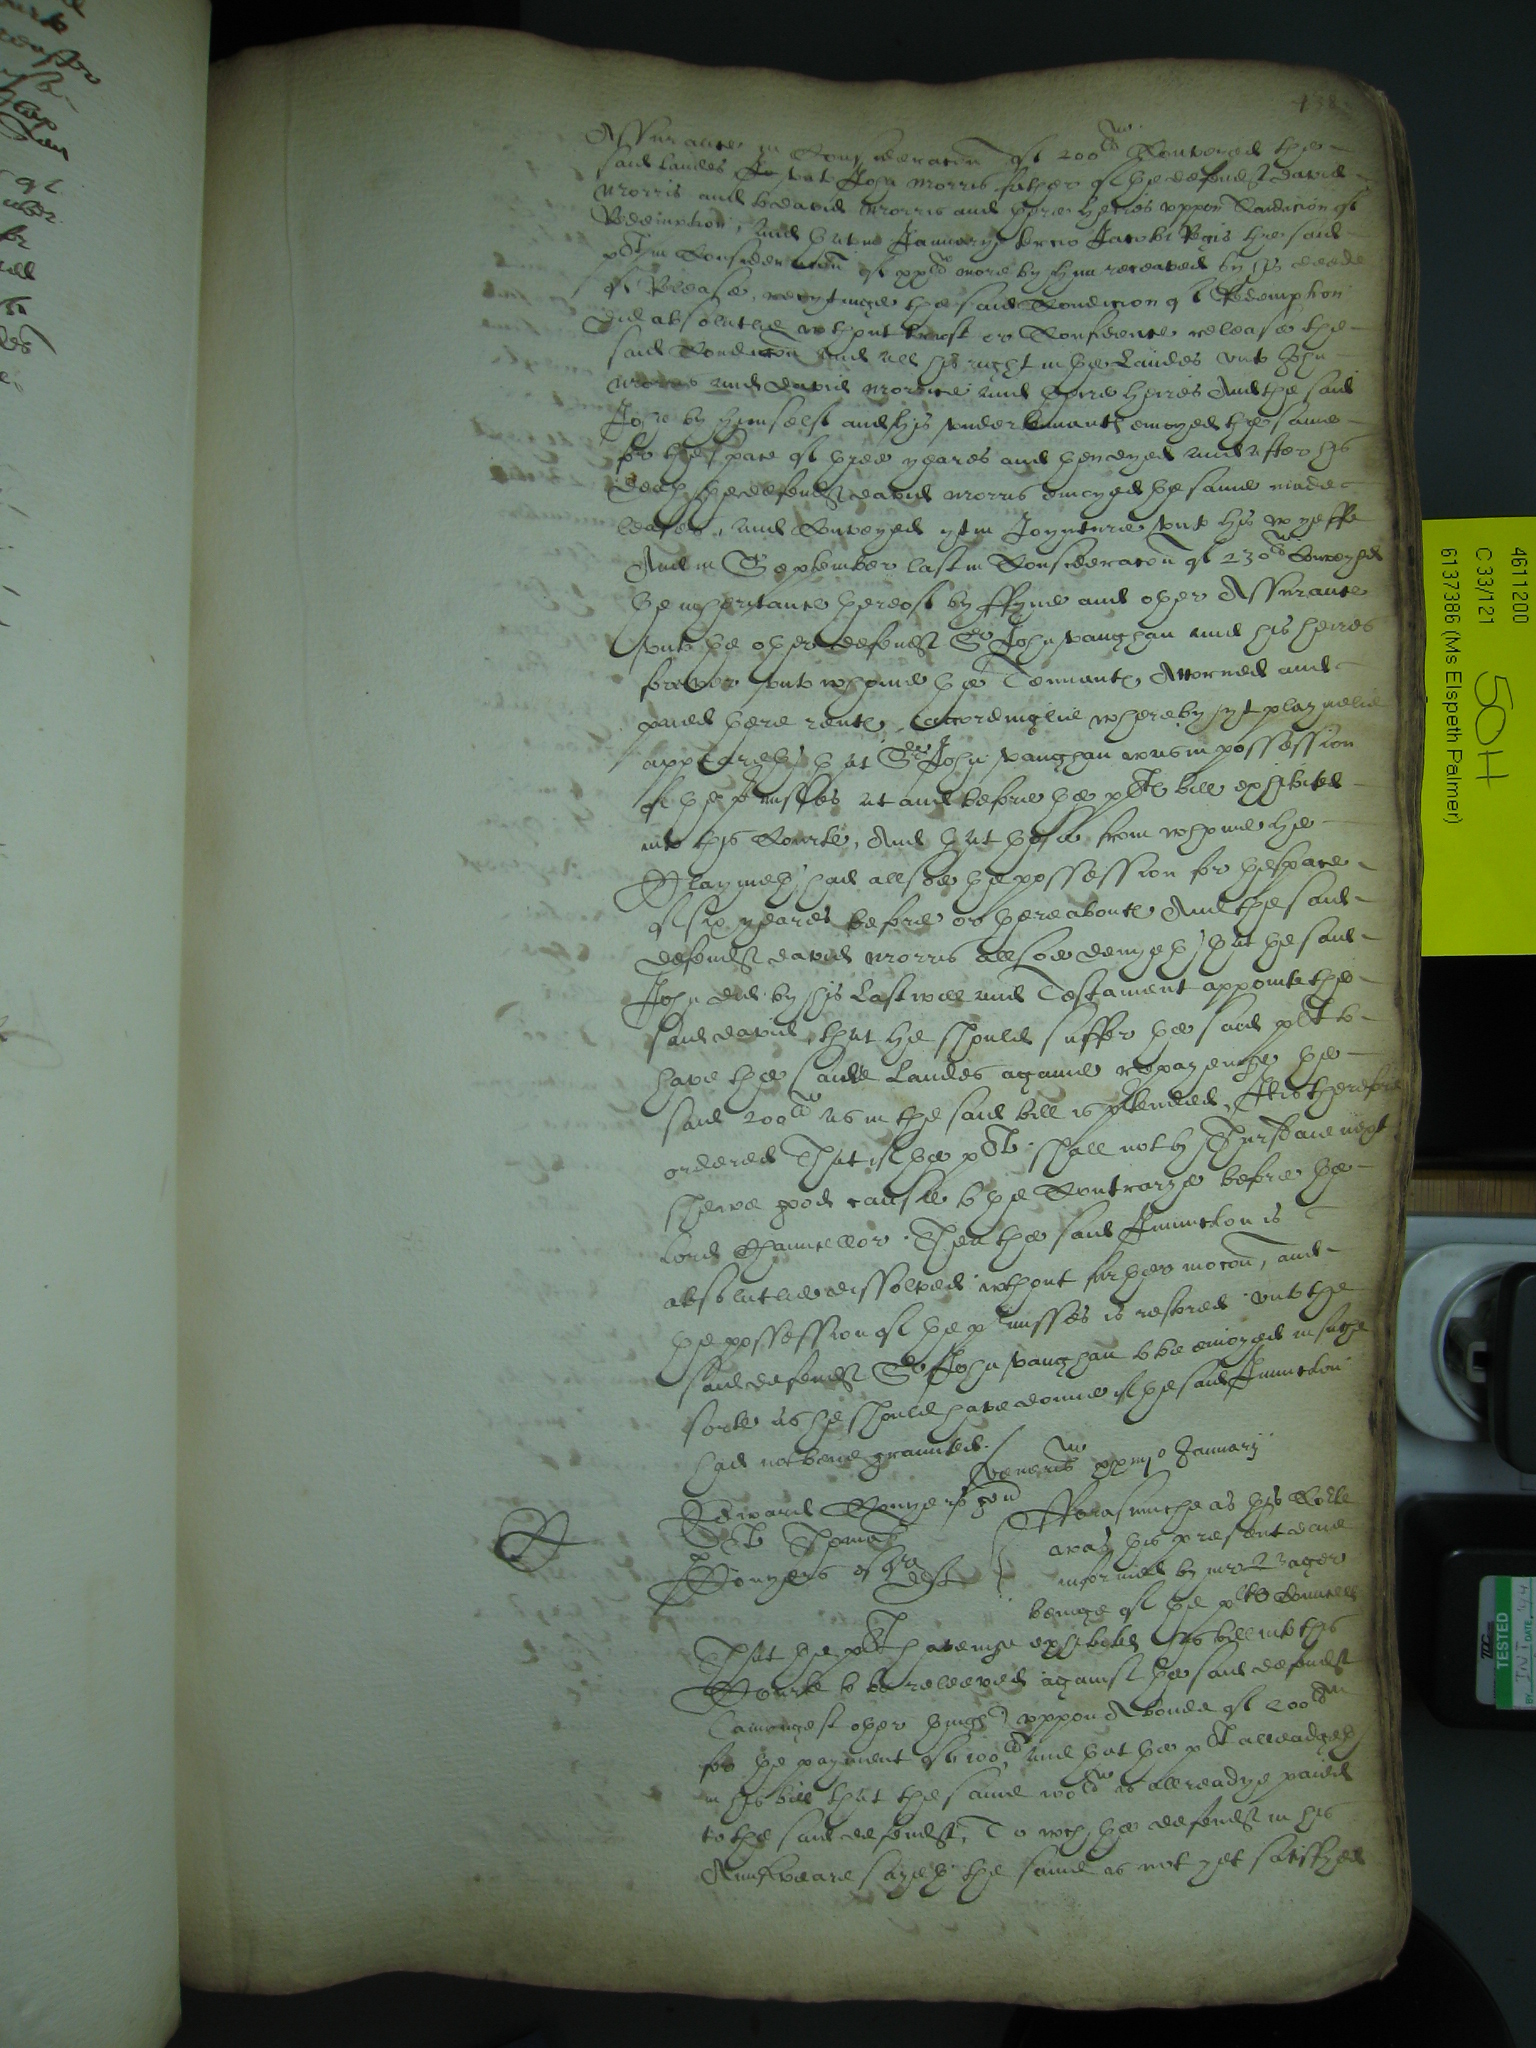 Assurance in Consideracon of 200li Conveyed the
said Landes unto John Morris father of the defendt david
Morris and david Morris and there heires uppon Condicion of
Redemption, And that in January tercio Jacobi Regis the said
plt in Consideracion of xxli more by him receaved by his deede
of Release, recytinge the said Condicion of Redemption
did absolutlie without trust or Confidence release the
said Condicon and all his right in the Landes unto John
Morris and david Morrice and there heires And the said
John by himself and his undertennants enioyed the same
for the space of three yeares and then dyed and after his
death the defendt david Morris enioyed the same made
leases, and Conveyed yt in Joynture unto his wyeffe
And in September last in Consideracon of 230li Conveyed
the inheritance thereof by ffyne and other Assurance
unto the other defendt Sr John vaughan and his heires
forever unto whome the Tennants Attorned and
paied there rents accordinglie whereby yt playnelie
appeareth that Sr John vaughan was in possession
of the p'misses at and before the plts bill exhibited
into this Courte, And that those from whome he
Claymeth had allsoe the possession for the space
of six yeares before or thereabouts And the said
defendt david Morris allsoe denyeth that the said
John did by his Last will and Testament appointe the
said david, that he should suffer the said plt to
have the said Landes againe repayenge the
said 200li as in the said bill is p'tended, It is therefore
ordered That if the plt shall not by Thursdaie next
shewe good cause to the Contrarye before the
Lord Chauncellor Then the said Iniunction is
absolutlie dissolved without further mocon, and
the possession of the p'misses is restored unto the
said defendt Sr John vaughan to be enioyed in suche
sorte as he should have donne if the said Iniunction
had not bene graunted
Veneris xxiijo January
Edward Conyers gen
plt Thomas
Conyers esqr deft
Fforasmuche as this Corte
was this present daie
informed by mr Wager
beinge of the plts Councell
That the plt haveinge exhibited his bill into this
Courte to be releeved against the said defendt
(amongest other things) uppon A bonde of 200li
for the payment of 100li, And that the plt alleadgeth
in his bill that the same 100li is allreadye paied
to the said defendt, To wch the defendt in his
Answeare sayeth the same is not yet satisfyed
4611200
C 33/121
6137386 (Ms Elspeth Palmer)
50H
TESTED